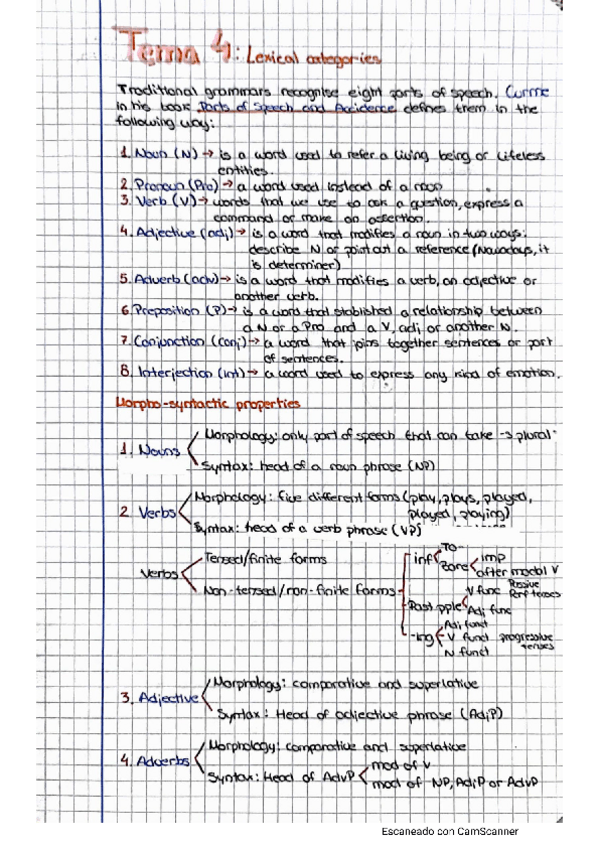 Tema 4: Lexical categories
Traditional grammars recognise eight parts of speech. Curme
in his book Parts of Speech and Accidence defines them in the
following way:
1. Noun (N) → is a word used to refer a living being or lifeless
entities.
2. Pronoun (Pro) → a word used instead of a noun
3. Verb (V) → words that we use to ask a question, express a
command or make an assertion.
4. Adjective (adj) → is a word that modifies a noun in two ways:
describe N or point out a reference (Nowadays, it
is determiner)
5. Adverb (adv) → is a word that modifies a verb, an adjective or
another verb.
6. Preposition (P) → is a word that stablished a relationship between
a N or a Pro and a V, adj or another N.
7. Conjunction (conj) → a word that joins together sentences or part
of sentences.
8. Interjection (int) → a word used to express any kind of emotion.
Morpho-syntactic properties
1. Nouns
Morphology: only part of speech that can take -s plural
Syntax: head of a noun phrase (NP)
2. Verbs
Morphology: five different forms (play, plays, played,
played, playing)
Syntax: head of a verb phrase (VP)
Verbs
Tensed/finite forms
Non-tensed/non-finite forms
inf
To
Bare
imp
after modal V
Past pple
V func
Passive
Perf tenses
Adj func
-ing
Adj funct
V funct progressive
tenses
N funct
3. Adjective
Morphology: comparative and superlative
Syntax: Head of adjective phrase (AdjP)
4. Adverbs
Morphology: comparative and superlative
Syntax: Head of AdvP
mod of V
mod of NP, AdjP or AdvP
Escaneado con CamScanner